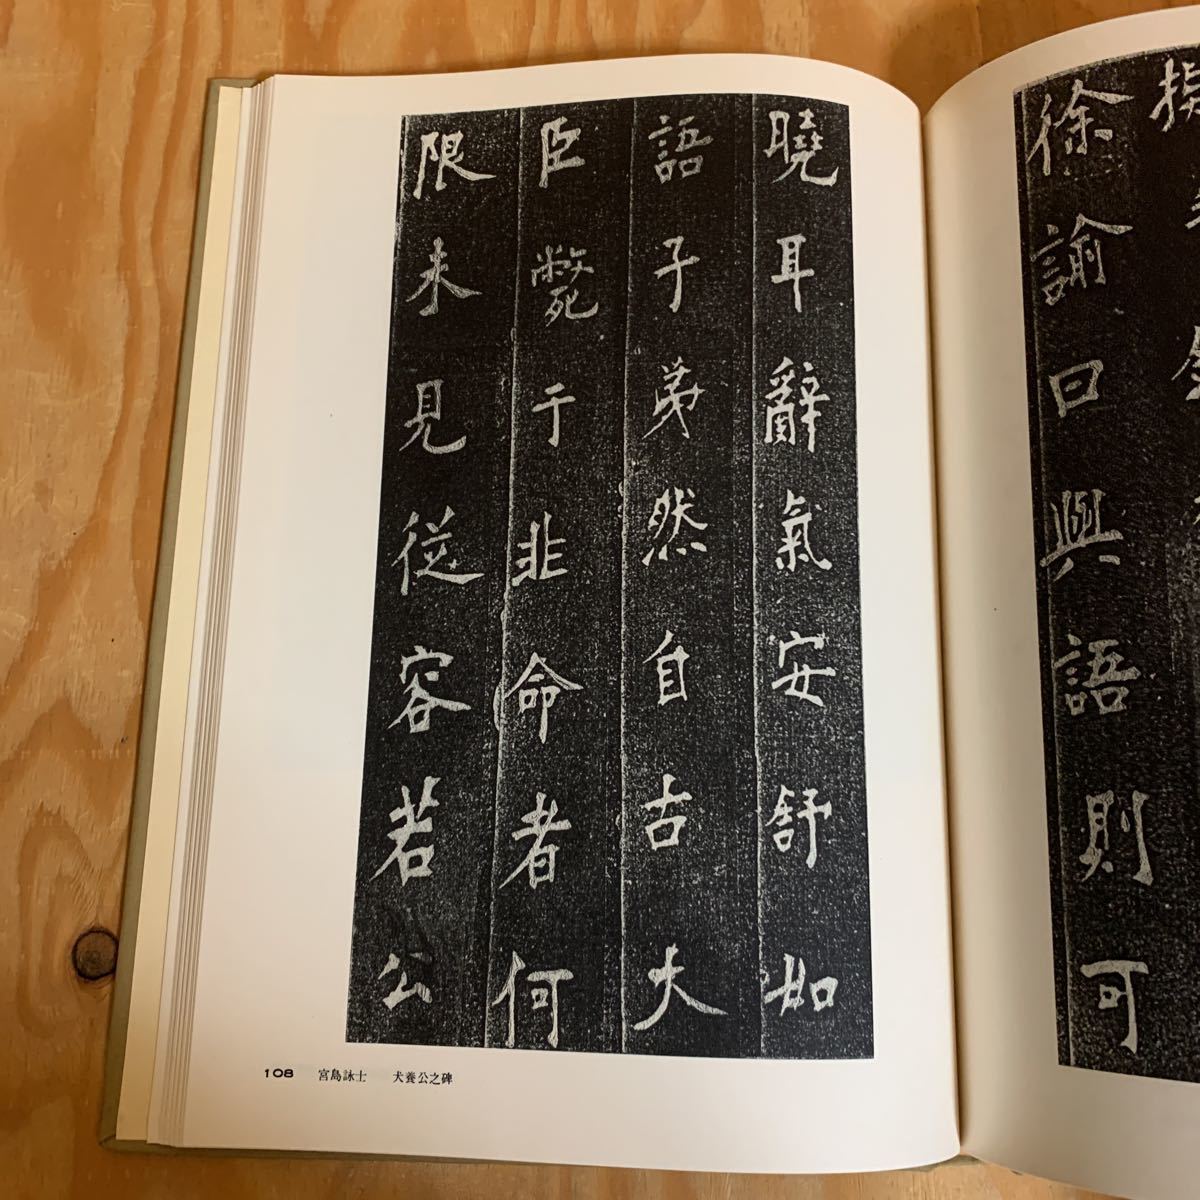 徐諭曰與語則可
曉耳辭氣安舒如
語子弟然自古大
臣斃于非命者何
限未見從容若公
108 宮島詠士 犬養公之碑